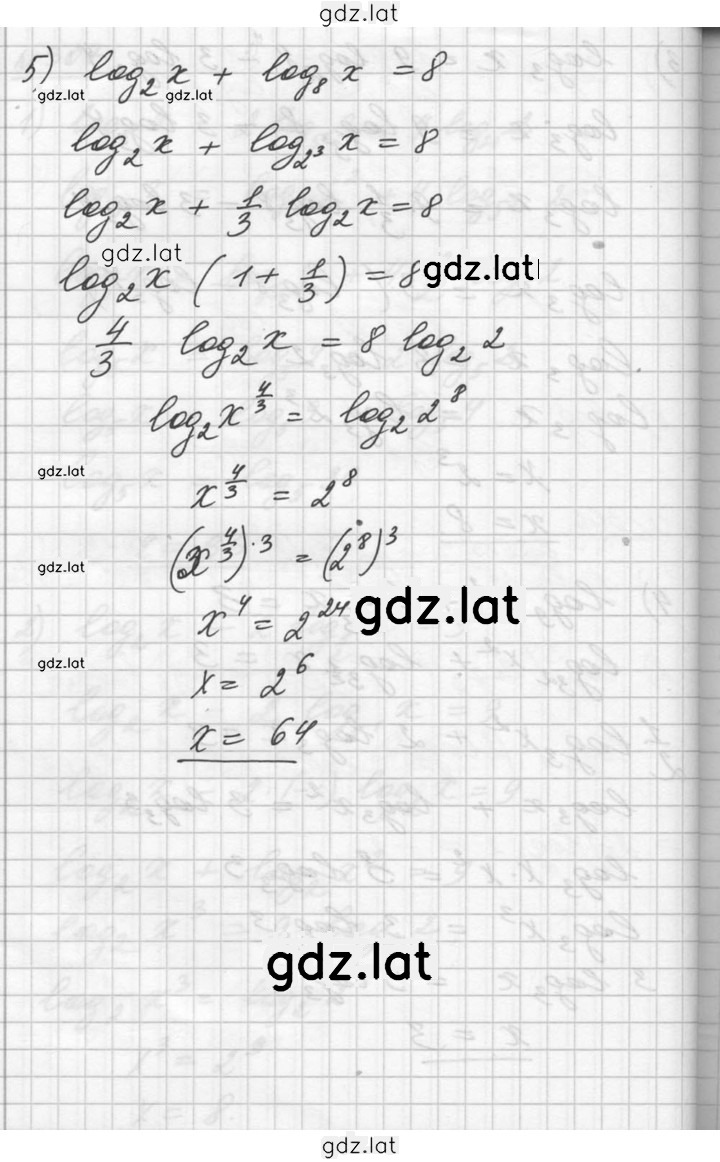 gdz.lat
5) log₂ x + log₈ x = 8
gdz.lat gdz.lat
log₂ x + log₂³ x = 8
log₂ x + 1/3 log₂ x = 8
gdz.lat
log₂ x (1 + 1/3) = 8 gdz.lat
4/3 log₂ x = 8 log₂ 2
log₂ x^(4/3) = log₂ 2⁸
gdz.lat
x^(4/3) = 2⁸
gdz.lat (x^(4/3))·³ = (2⁸)³
x⁴ = 2²⁴ gdz.lat
gdz.lat
x = 2⁶
x = 64
gdz.lat
gdz.lat